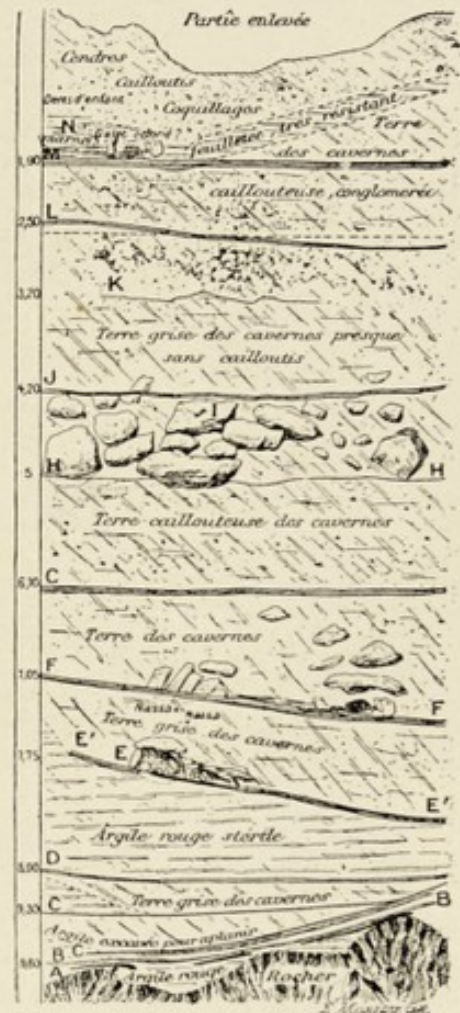 Partie enlevée
Cendres
Cailloutis
Coquillages
feuilletée très résistant
N
Terre
M
1,90
des cavernes
caillouteuse, conglomérée
2,50
L
K
3,20
Terre grise des cavernes presque
sans cailloutis
J
4,20
I
H
H
5
Terre caillouteuse des cavernes
C
6,10
Terre des cavernes
F
7,05
F
Terre grise des cavernes
7,75
E'
E
E'
Argile rouge stérile
D
Terre grise des cavernes
C
B
Argile excavée pour aplanir
B C
A
Argile rouge
Rocher